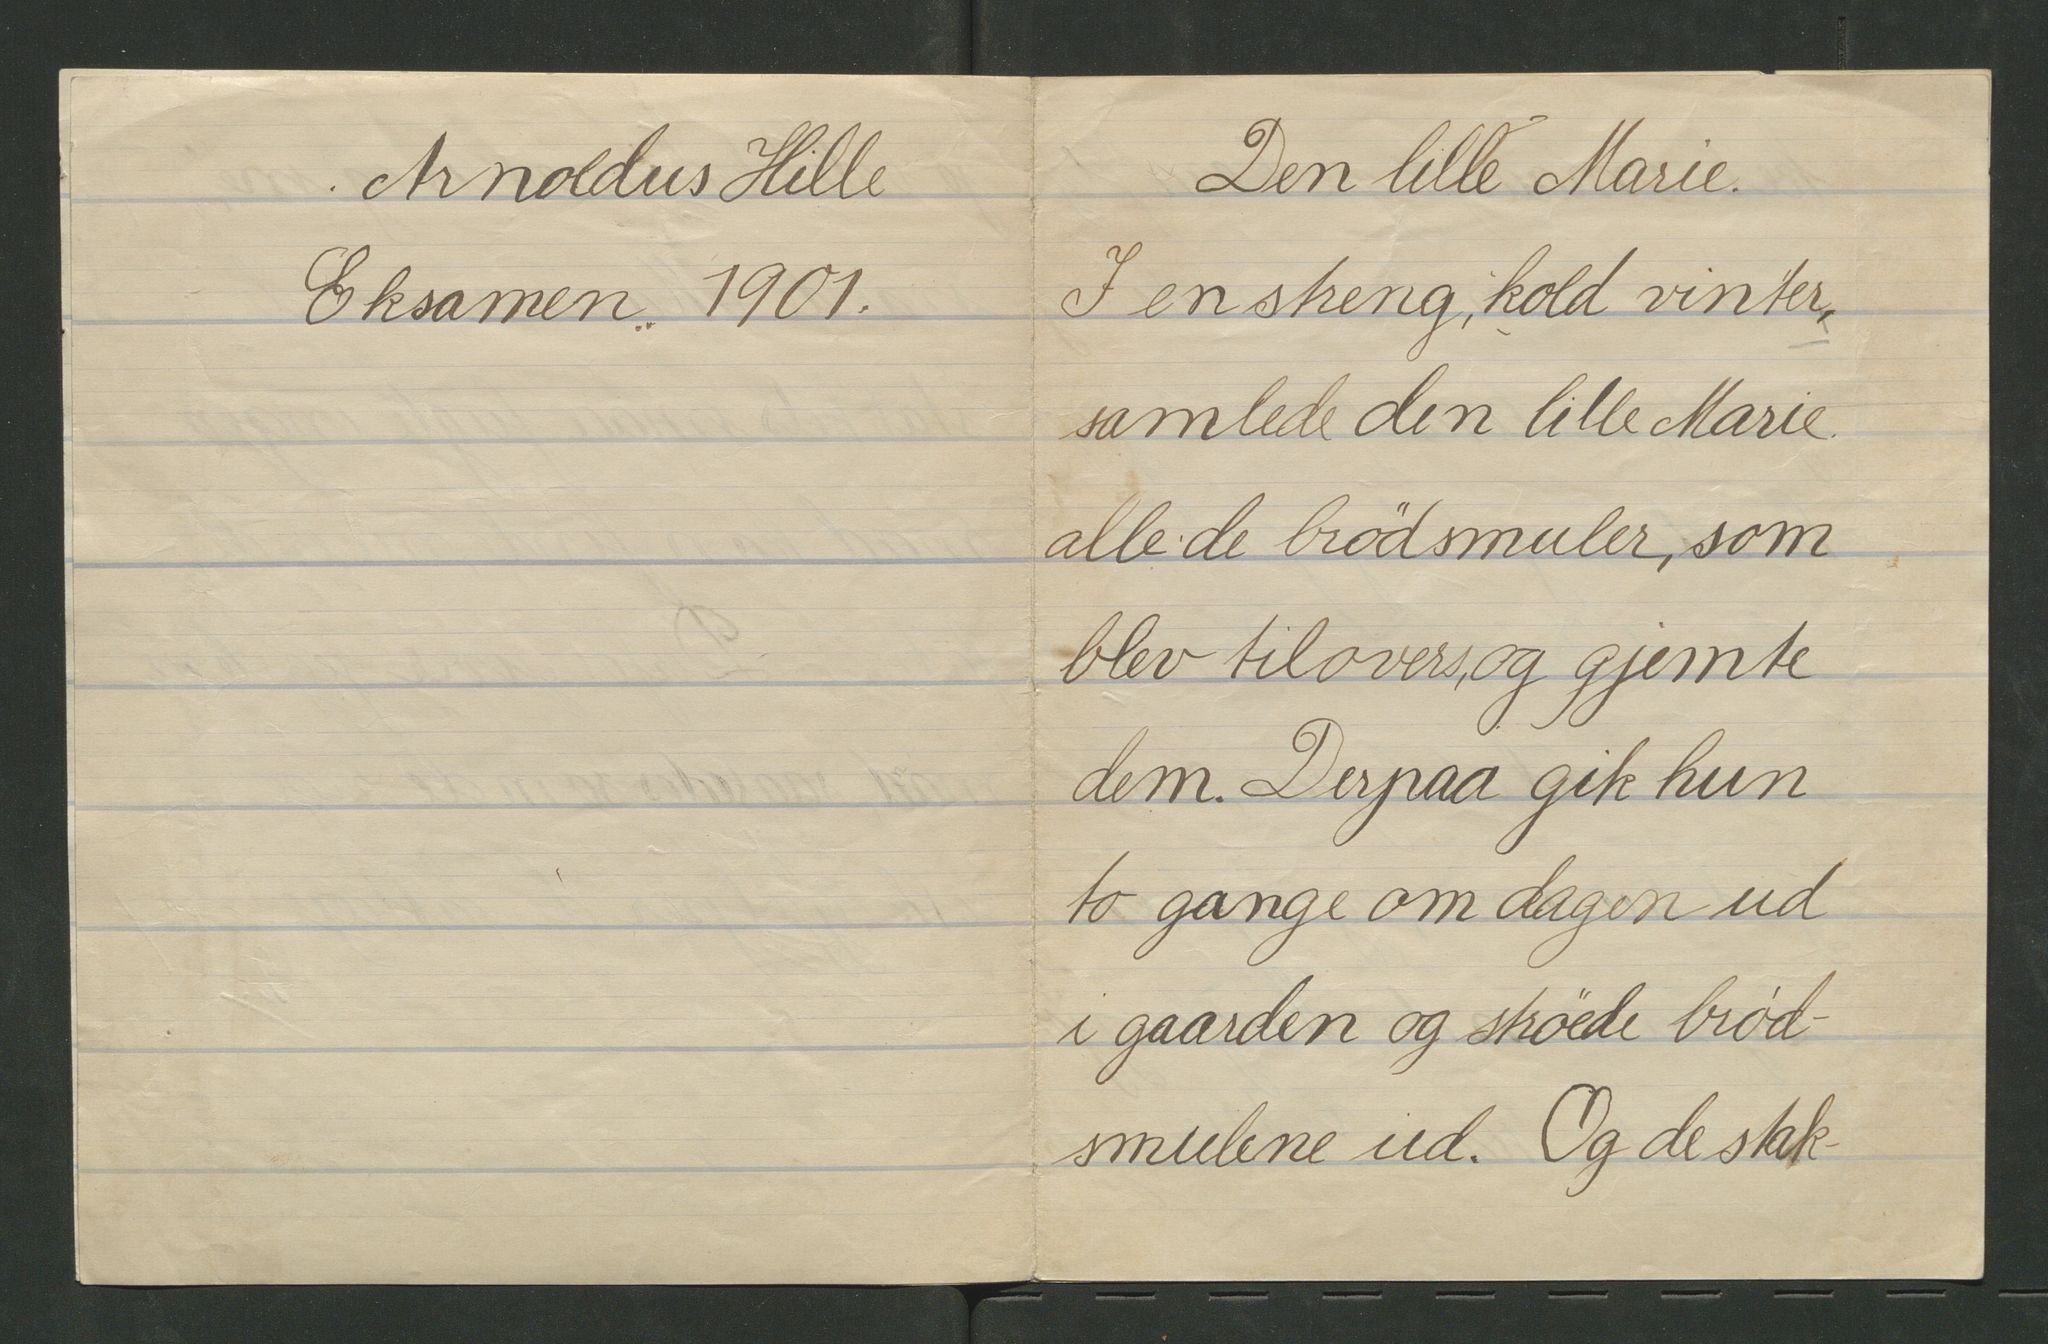 Arnoldus Hille
Eksamen. 1901.
Den lille Marie.
I en streng, kold vinter,
samlede den lille Marie
alle de brödsmuler, som
blev tilovers, og gjemte
dem. Derpaa gik hun
to gange om dagen ud
i gaarden og ströede bröd-
smulene ud. Og de stak-